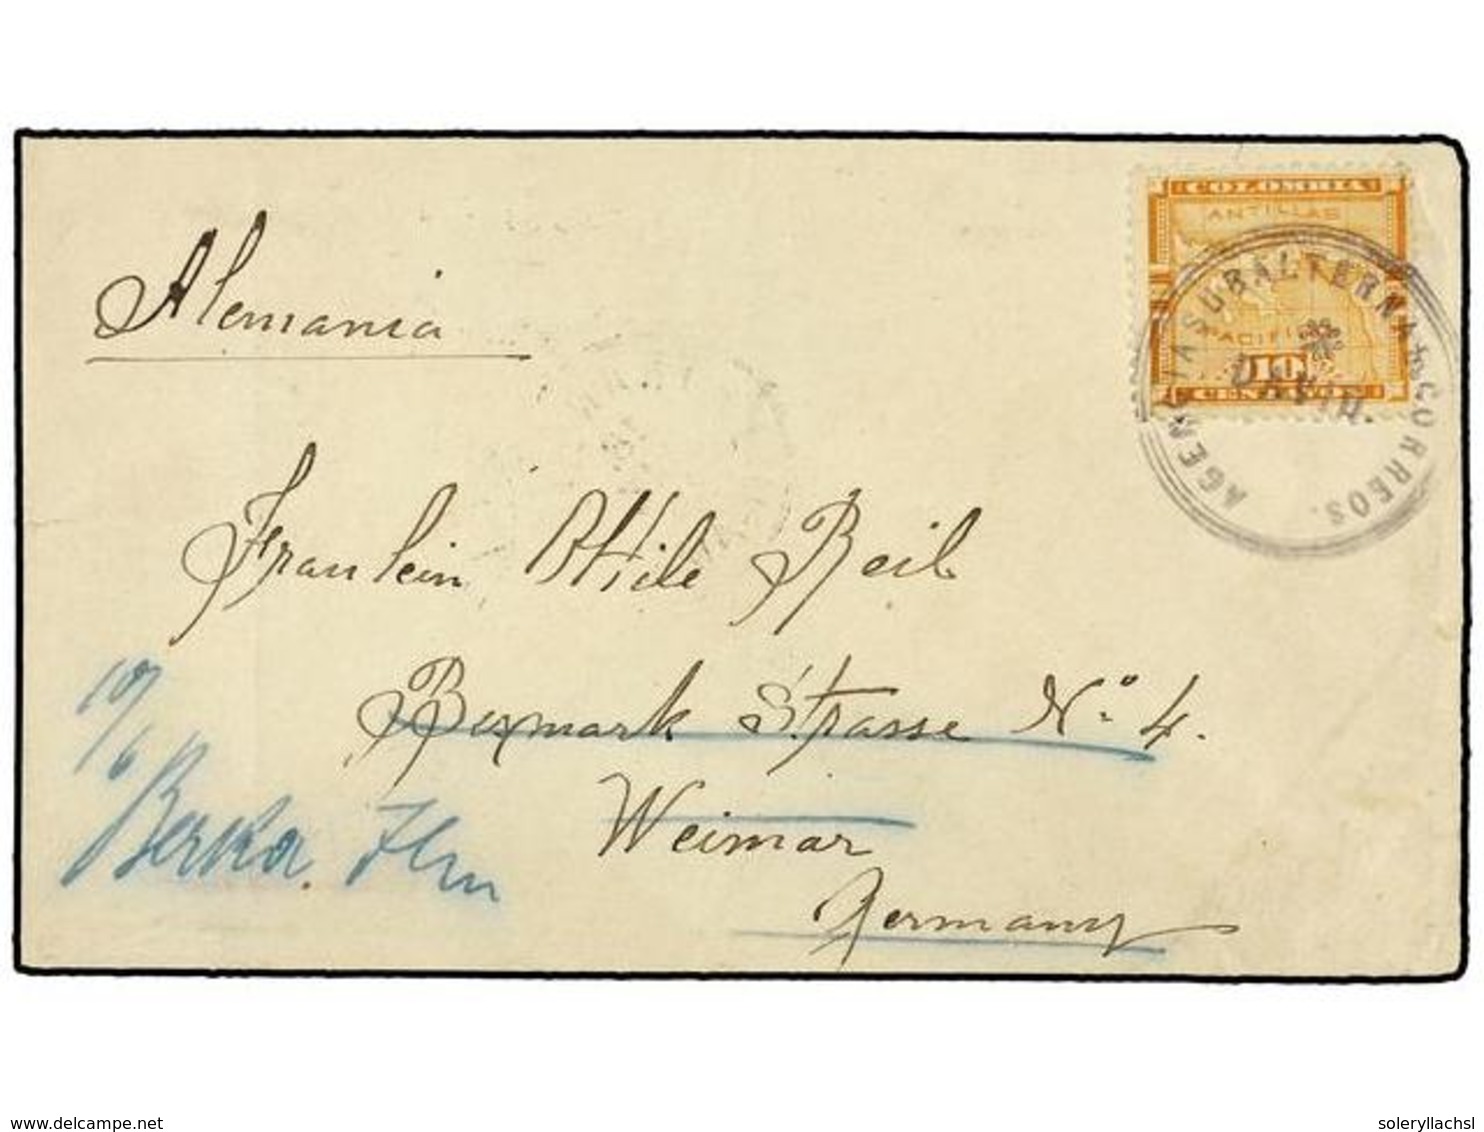 COLOMBIA
ANTILLAS
PACIFI
10
CENTAVOS
AGENCIA SUBALTERNA CORREOS.
DAVID.
Alemania
Fraulein Ottile Beil
Bismark Strasse No. 4.
Weimar
Germany
10/6
Berka. Ilm
www.delcampe.net
soleryllachsl